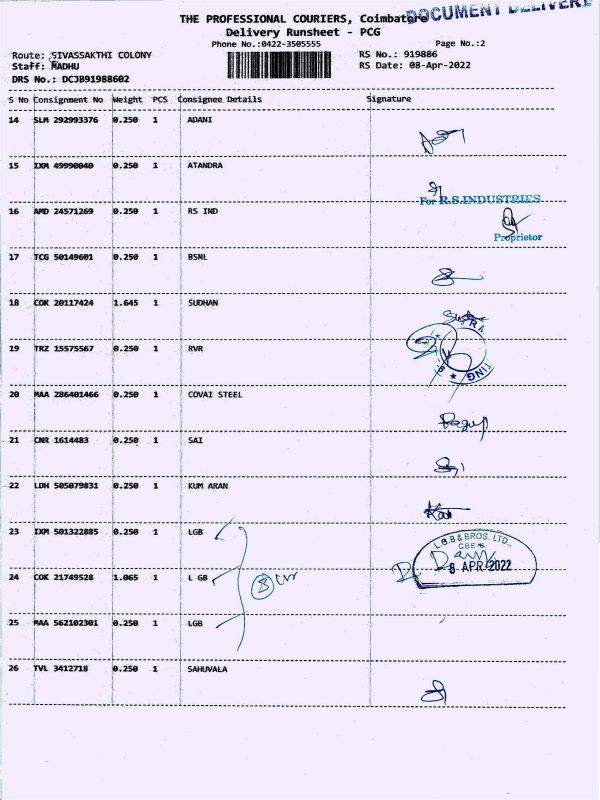 DOCUMENT DELIVERE
THE PROFESSIONAL COURIERS, Coimbatore
Delivery Runsheet - PCG
Phone No.:0422-3505555
Page No.:2
Route: SIVASSAKTHI COLONY
RS No.: 919886
Staff: MADHU
RS Date: 08-Apr-2022
DRS No.: DCJB91988602
S No Consignment No Weight PCS Consignee Details Signature
14 SLM 292993376 0.250 1 ADANI
15 IXM 49990040 0.250 1 ATANDRA
For R.S.INDUSTRIES
16 AMD 24571269 0.250 1 RS IND
Proprietor
17 TCG 50149601 0.250 1 BSNL
18 COK 20117424 1.645 1 SUDHAN
19 TRZ 15575567 0.250 1 RVR
20 MAA 286401466 0.250 1 COVAI STEEL
21 CNR 1614483 0.250 1 SAI
22 LDH 505079831 0.250 1 KUM ARAN
23 IXM 501322885 0.250 1 LGB
L.G.B & BROS. LTD.,
24 COK 21749528 1.065 1 L GB
8 APR 2022
25 MAA 562102301 0.250 1 LGB
26 TVL 3412718 0.250 1 SAHUVALA